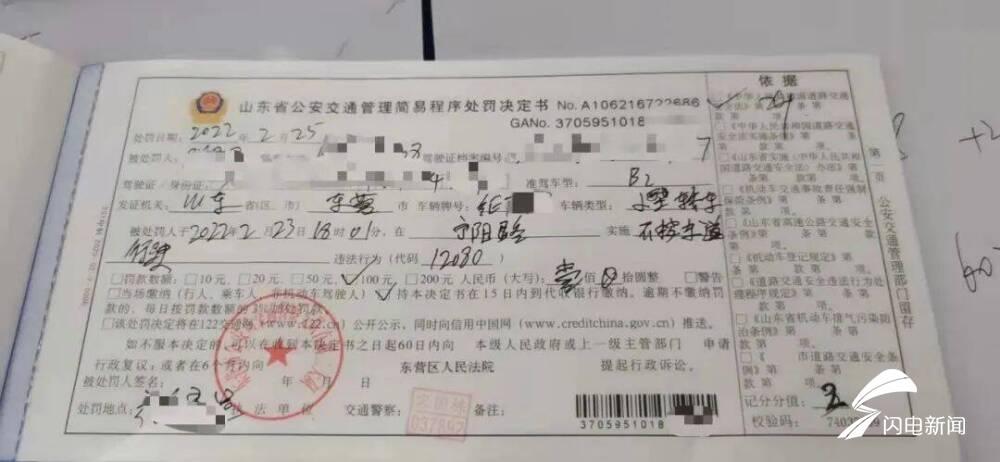 山东省公安交通管理简易程序处罚决定书 No. A106216722686
GANo. 3705951018
处罚日期: 2022.2.25
被处罚人: 驾驶证档案编号: 7
驾驶证/身份证: 4 准驾车型: B2
发证机关: 山东 省(区、市) 东营 市 车辆牌号: 车辆类型: 小型轿车
被处罚人于2022年2月23日18时01分,在 宁阳路 实施 不按车道
行驶 违法行为(代码) 12080
□罚款数额:□10元、□20元、□50元、☑100元、□200元 人民币(大写): 壹佰0拾圆整 □警告
□当场缴纳(行人、乘车人、非机动车驾驶人) ☑持本决定书在15日内到代收银行缴纳。逾期不缴纳罚
款的,每日按罚款数额的3%加处罚款。
□该处罚决定将在122交通网(www.122.cn)公开公示,同时向信用中国网(www.creditchina.gov.cn)推送。
如不服本决定的,可以在收到本决定书之日起60日内向 本级人民政府或上一级主管部门 申请
行政复议;或者在6个月内向 东营区人民法院 提起行政诉讼。
被处罚人签名: 年 月 日
处罚地点: 执法单位 交通警察: 备注:
037892
3705951018
依据
《中华人民共和国道路交通
安全法》第 条第
款第 项。
□《中华人民共和国道路交通
安全法实施条例》第 条第
款第 项。
□《山东省实施〈中华人民共和
国道路交通安全法〉办法》第
条第 款第 项。
□《机动车交通事故责任强制
保险条例》第 条第 款。
□《山东省高速公路交通安全
条例》第 条第 款第 项。
□《机动车登记规定》第
条第 款第 项。
□《道路交通安全违法行为处
理程序规定》第 条第
款第 项。
□《山东省机动车排气污染防
治条例》第 条第 项。
□《 市道路交通安全条
例》第 条第 款第 项。
记分分值:
校验码: 740
第一页
公安交通管理部门留存
闪电新闻